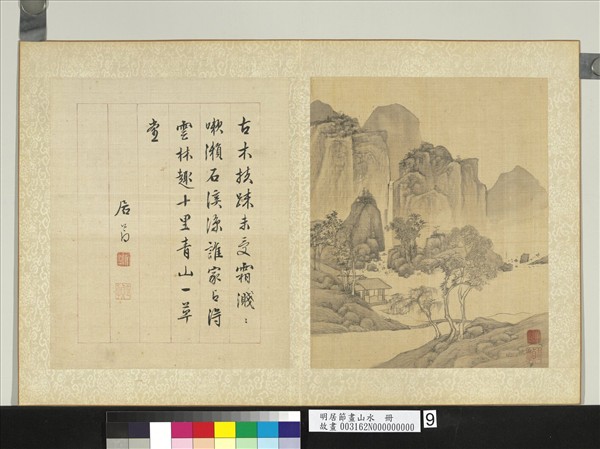 古木扶疎未受霜濺〻
嗽瀨石溪涼誰家占得
雲林趣十里青山一草
堂
居節
明居節畫山水 冊
故畫 003162N000000000
9